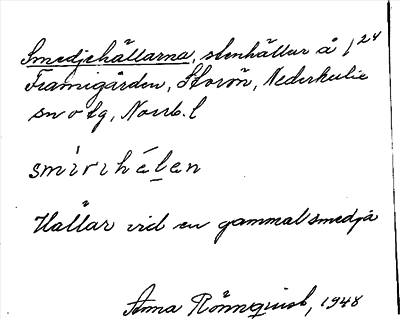 Smedjehällarna, stenhällar å 1 24
Framigården, Storön, Nederkalix
sn o tg, Norrb. l
smìrihélen
Hällar vid en gammal smedja
Anna Rönnquist, 1948